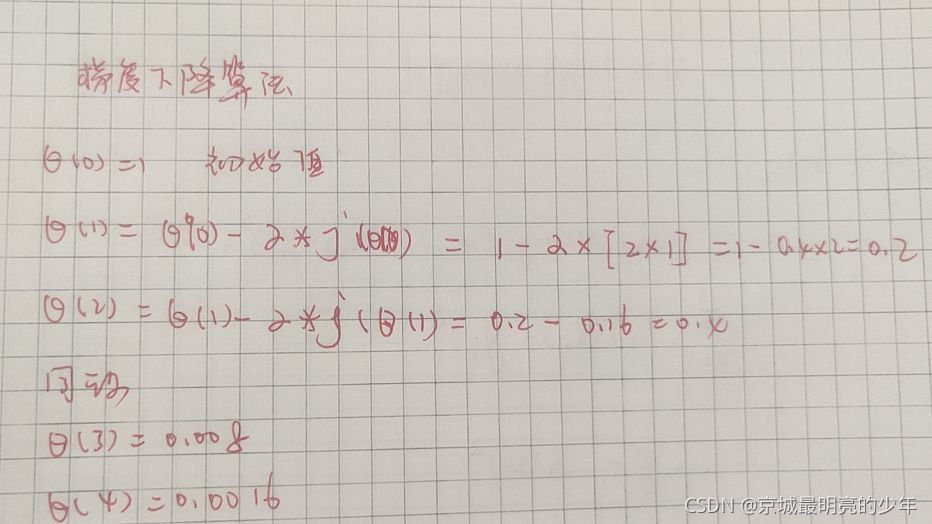 梯度下降算法
θ(0) = 1 初始值
θ(1) = θ(0) - α * J'(θ(0)) = 1 - α × [2×1] = 1 - 0.4×2 = 0.2
θ(2) = θ(1) - α * J'(θ(1)) = 0.2 - 0.16 = 0.4
θ(3) = 0.008
θ(4) = 0.0016
CSDN @京城最明亮的少年